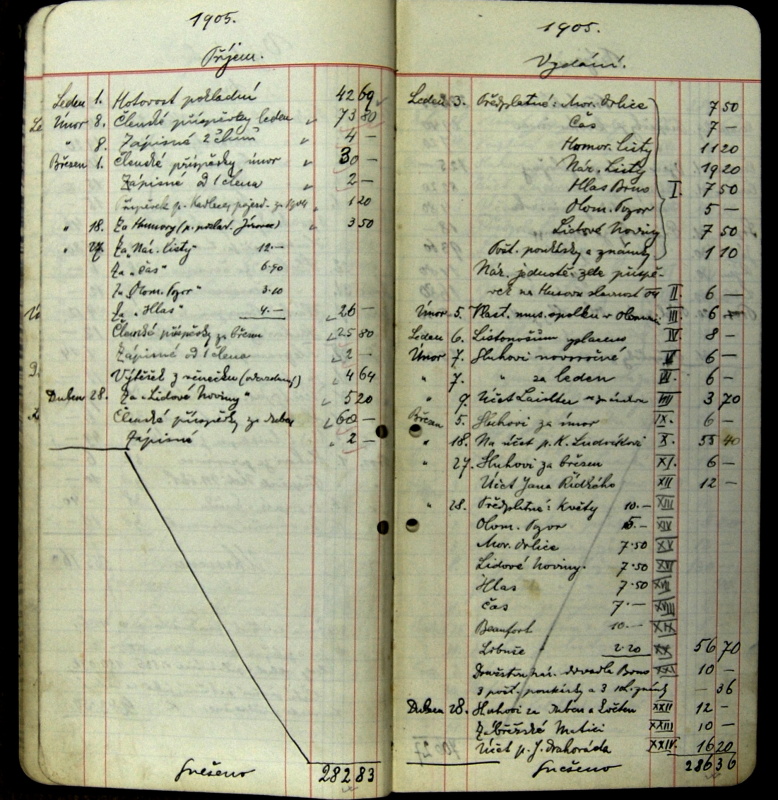 1905.
Příjem.
Leden 1. Hotovost pokladní 42 69
Únor 8. Členské příspěvky leden " 73 80
" 8. Zápisné 2 členů " 4 —
Březen 1. Členské příspěvky únor " 30 —
Zápisné od 1 člena " 2 —
1 20
" 18. Za Humory 3 50
" 27. Za "Nár. listy" 12.—
Za "Čas" 6.90
Za "Olom. Pozor" 3.10
Za "Hlas" 4.— 26 —
Členské příspěvky za březen 25 80
Zápisné od 1 člena 2 —
Výtěžek z věnečku 4 64
Duben 28. Za "Lidové Noviny" 5 20
Členské příspěvky za duben 60 —
Zápisné 2 —
Snešeno 282 83
1905.
Vydání.
Leden 3. Předplatné: Mor. Orlice 7 50
Čas 7 —
Humor. Listy 11 20
Nár. Listy 19 20
Hlas Brno I. 7 50
Olom. Pozor 5 —
" Lidové Noviny 7 50
Pošt. poukázky a známky 1 10
Nár. jednotě
na Husovu slavnost II. 6 —
Únor 5. Vlast. mus. spolku v Olomouci III. 6
Leden 6. Listonošům IV. 8 —
Únor 7. Sluhovi novoročné V. 6 —
" 7. " za leden VI. 6 —
" 9. Účet 3 70
Březen 5. Sluhovi za únor IX. 6 —
" 18. Na účet p. K. X. 55 40
" 27. Sluhovi za březen XI. 6 —
Účet Jana Řídkého XII 12 —
" 28. Předplatné: Květy 10.— XIII
Olom. Pozor 5.— XIV
Mor. Orlice 7.50 XV
Lidové Noviny. 7.50 XVI
Hlas 7.50 XVII
Čas 7.— XVIII
Beaufort 10.— XIX
2.20 XX 56 70
divadla Brno XXI 10 —
3 pošt. poukázky a 3 — 36
Duben 28. Sluhovi za duben a květen XXII 12 —
Zábřežské Matici XXIII 10 —
Účet p. J. XXIV. 16 20
Snešeno 286 36